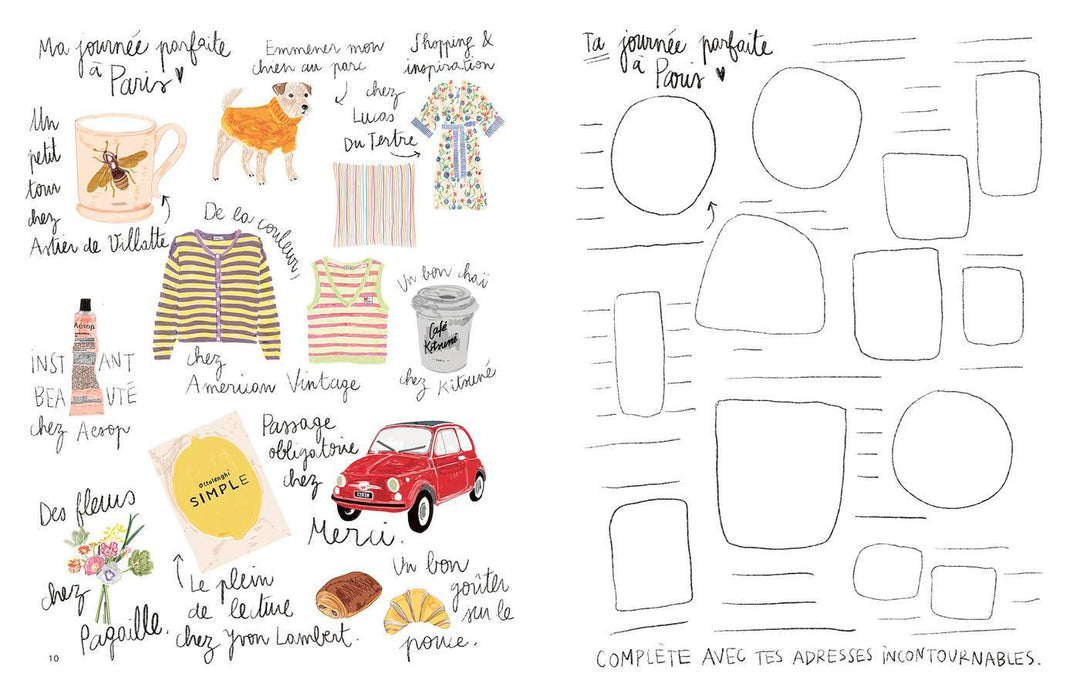 Ma journée parfaite
à Paris
Emmener mon
chien au parc
Shopping &
inspiration
chez
Lucas
Du Tertre
Un
petit
tour
chez
Astier de Villatte
De la couleur,
chez
American Vintage
Un bon chaï
Café
Kitsuné
chez Kitsuné
Aesop
INSTANT
BEAUTÉ
chez Aesop
ottolenghi
SIMPLE
Passage
obligatoire
chez
Merci.
Des fleurs
chez
Pagaille.
Le plein
de lecture
chez Yvon Lambert.
Un bon
goûter
sur le
pouce.
10
Ta journée parfaite
à Paris
COMPLÈTE AVEC TES ADRESSES INCONTOURNABLES.